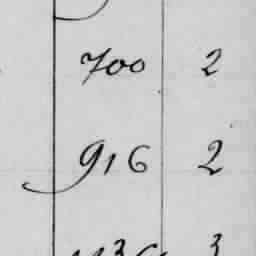 700 2
916 2